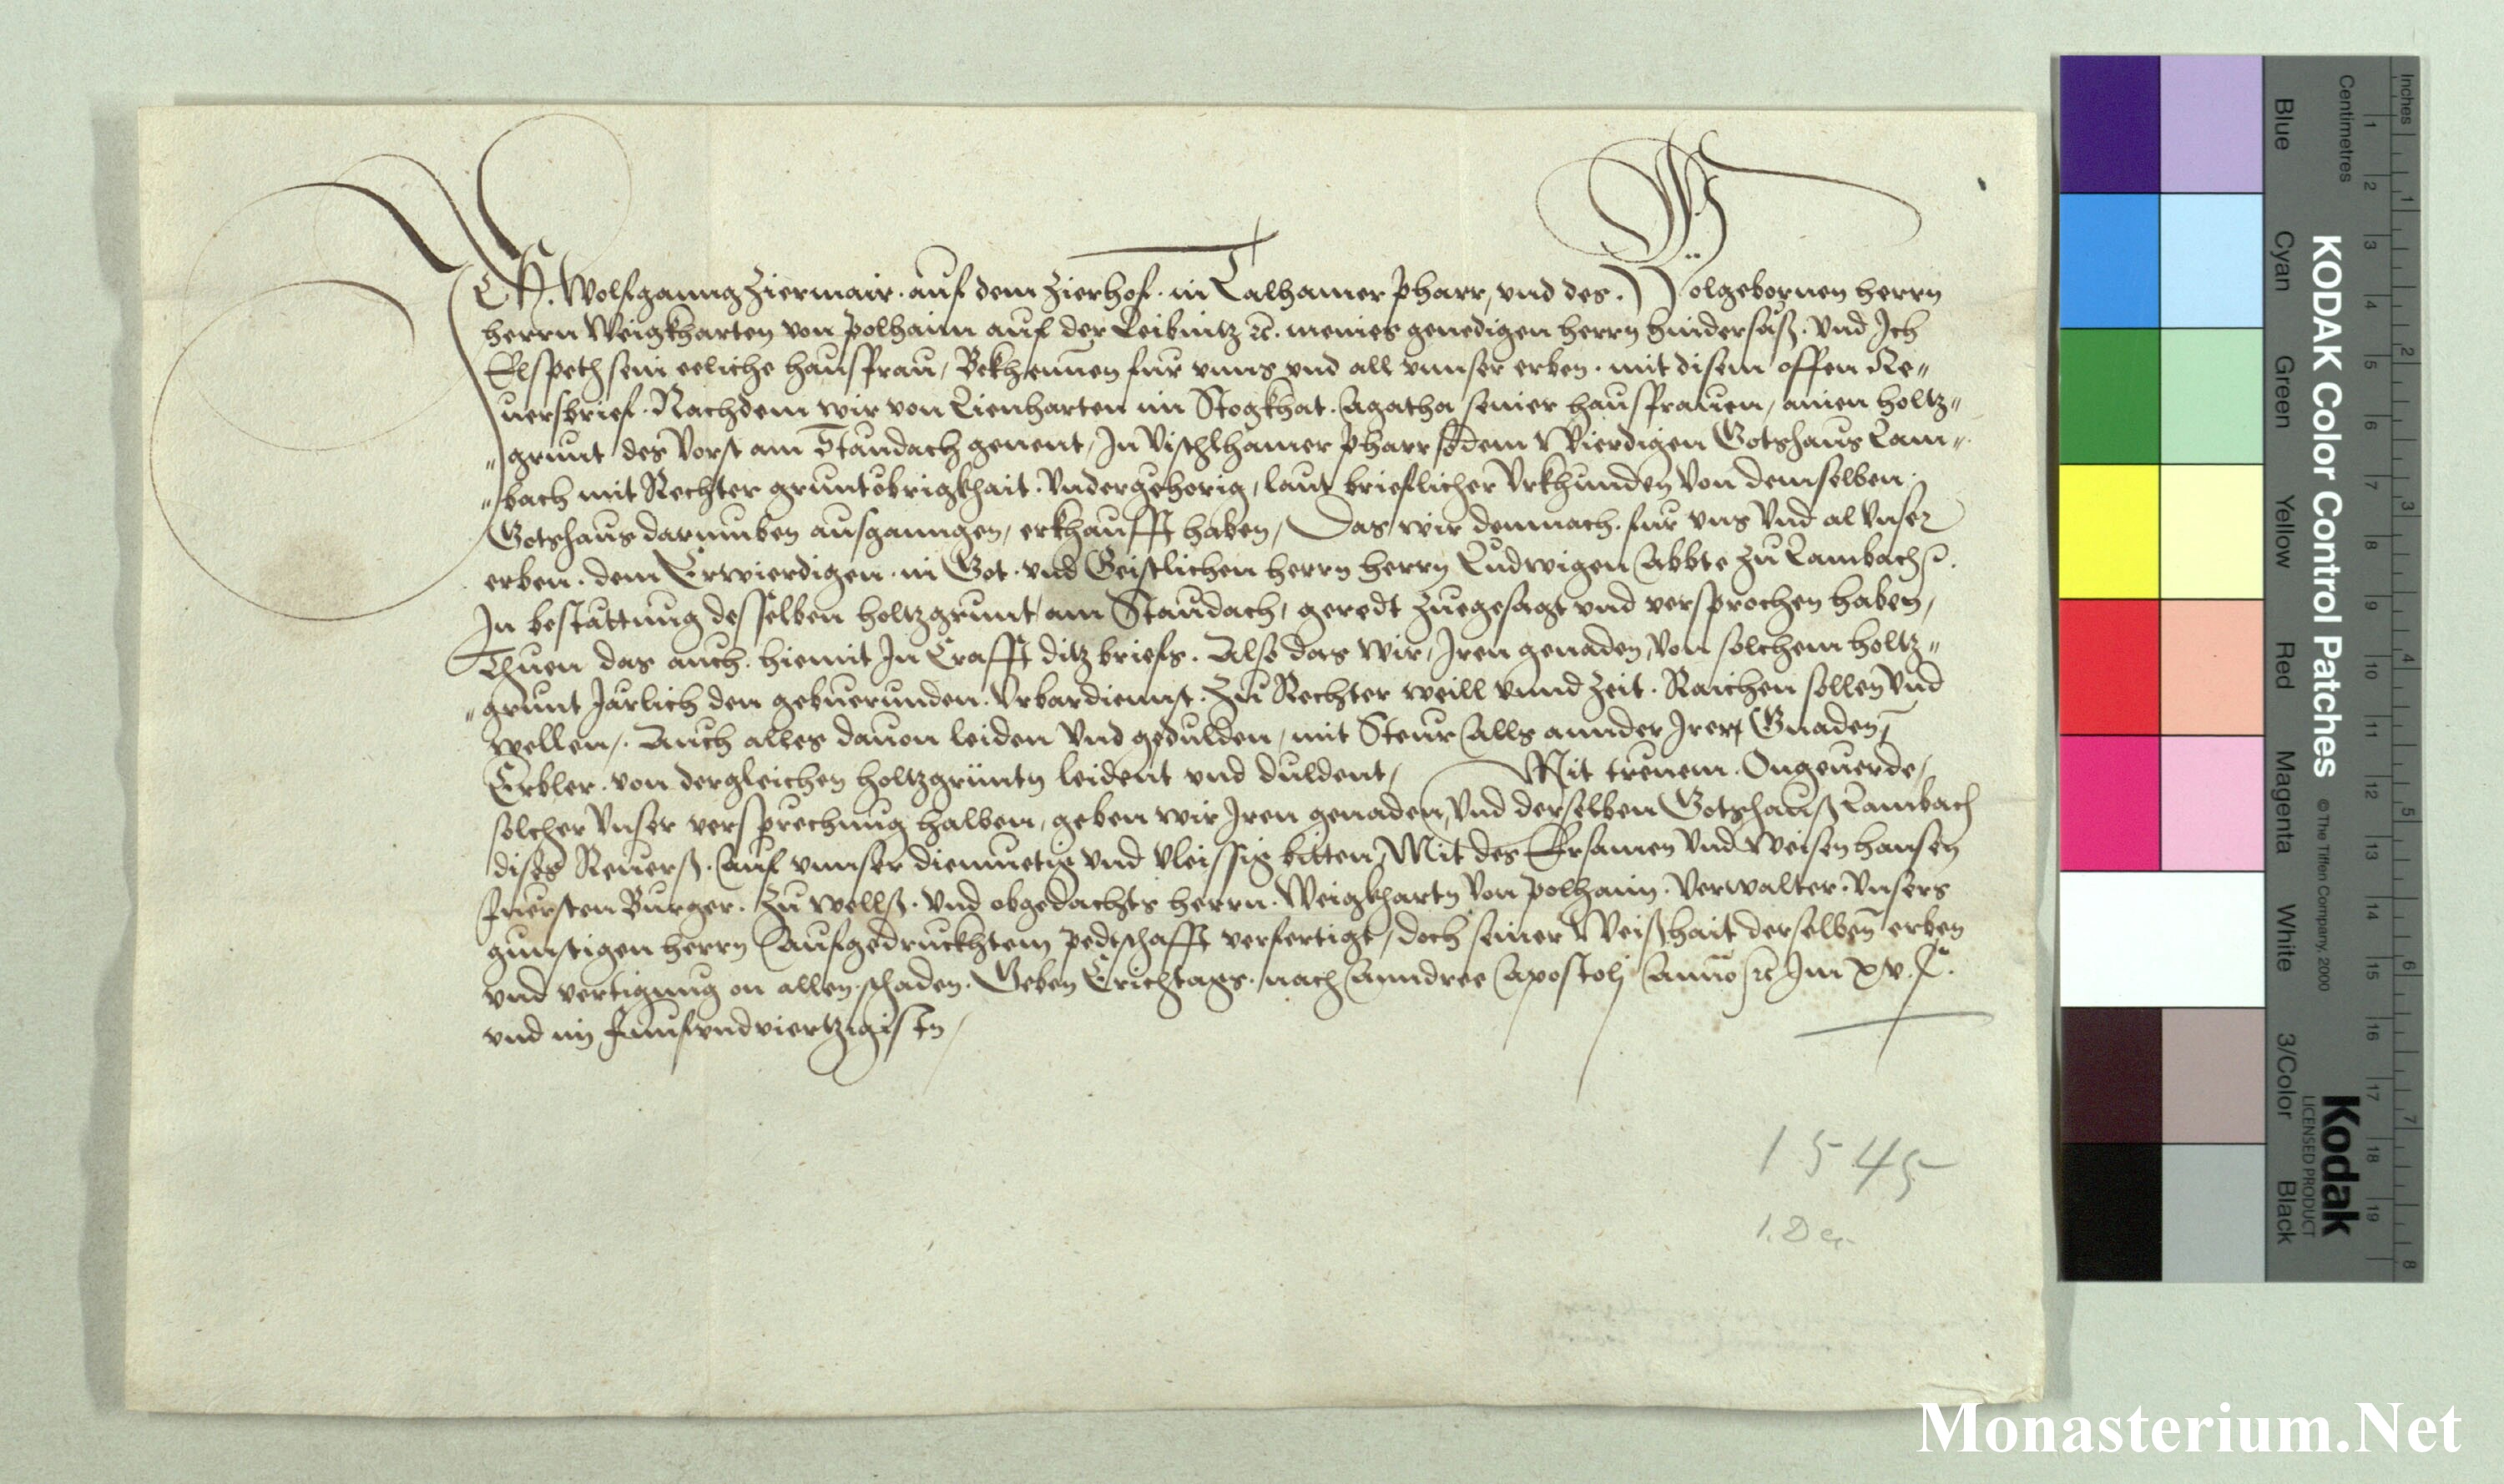 ICH. Wolfganng Ziermair. auf dem Zierhof. in Talhamer Pharr, vnd des. Wolgebornen herrn
herrn Weigkharten von Polhaim auf der Leibnitz ꝛc. meines genedigen herrn hindersäß. Vnd Ich
Elspeth sein eeliche hausfrau, Bekhennen fur vnns vnd all vnnser erben. mit disem offen Re„
uersbrief. Nachdem wir von Lienharten im Stogkhat. Agatha seiner hausfrauen, ainen holtz„
„grunt des Vorst am Staudach genent, In Vischlhamer Pharr so dem Wierdigen Gotshaus Lam„
„bach mit Rechter gruntobrigkhait. Vndergehorig, laut brieflicher Vrkhunden Von demselben.
Gotshaus darumben ausganngen, erkhaufft haben, Das wir demnach. fur vns Vnd al Vnser
erben. dem Erwierdigen. in Got. vnd Geistlichen herrn herrn Ludwigen Abbte zu Lambach ꝛc.
In bestättung desselben holtzgrunt am Staudach, geredt zuegesagt vnd versprochen haben,
Thuen das auch. hiemit In Crafft ditz briefs. Also das wir, Iren genaden, Von solchem holtz„
„grunt Järlich den gebuerunden. Vrbardiennst. Zu Rechter weill vnnd Zeit. Raichen sollen Vnd
wellen,. Auch alles dauon leiden Vnd gedulden, mit Steur Alls annder Irer Gnaden
Erbler. von dergleichen holtzgrüntn leident vnd duldent, Mit treuem. Ongeuerde,
solcher Vnser versprechnug halben, geben wir Iren genaden, Vnd derselben Gotshauß Lambach
dises Reuerß. Auf vnnser diemuetig vnd Vleissig bitten, Mit des Ersamen Vnd Weisen hansen
Burger. Zu Wellß. Vnd obgedachts herrn. Weigkhartn Von Polhaim. Verwalter. Vnsers
gunstigen herrn Aufgedruckhtem Pedtschafft verfertigt, doch seiner Weißhait derselben erben
vnd vertigung on allen. schaden. Geben Erichtags. nach Anndree Apostolj Anno ꝛc Im xv.C
vnd im Funfvndviertzigistn,
1545
1. Dez.
Monasterium.Net
KODAK Color Control Patches
© The Tiffen Company, 2000
Kodak
LICENSED PRODUCT
Inches 1 2 3 4 5 6 7 8
Centimetres 1 2 3 4 5 6 7 8 9 10 11 12 13 14 15 16 17 18 19
Blue Cyan Green Yellow Red Magenta White 3/Color Black